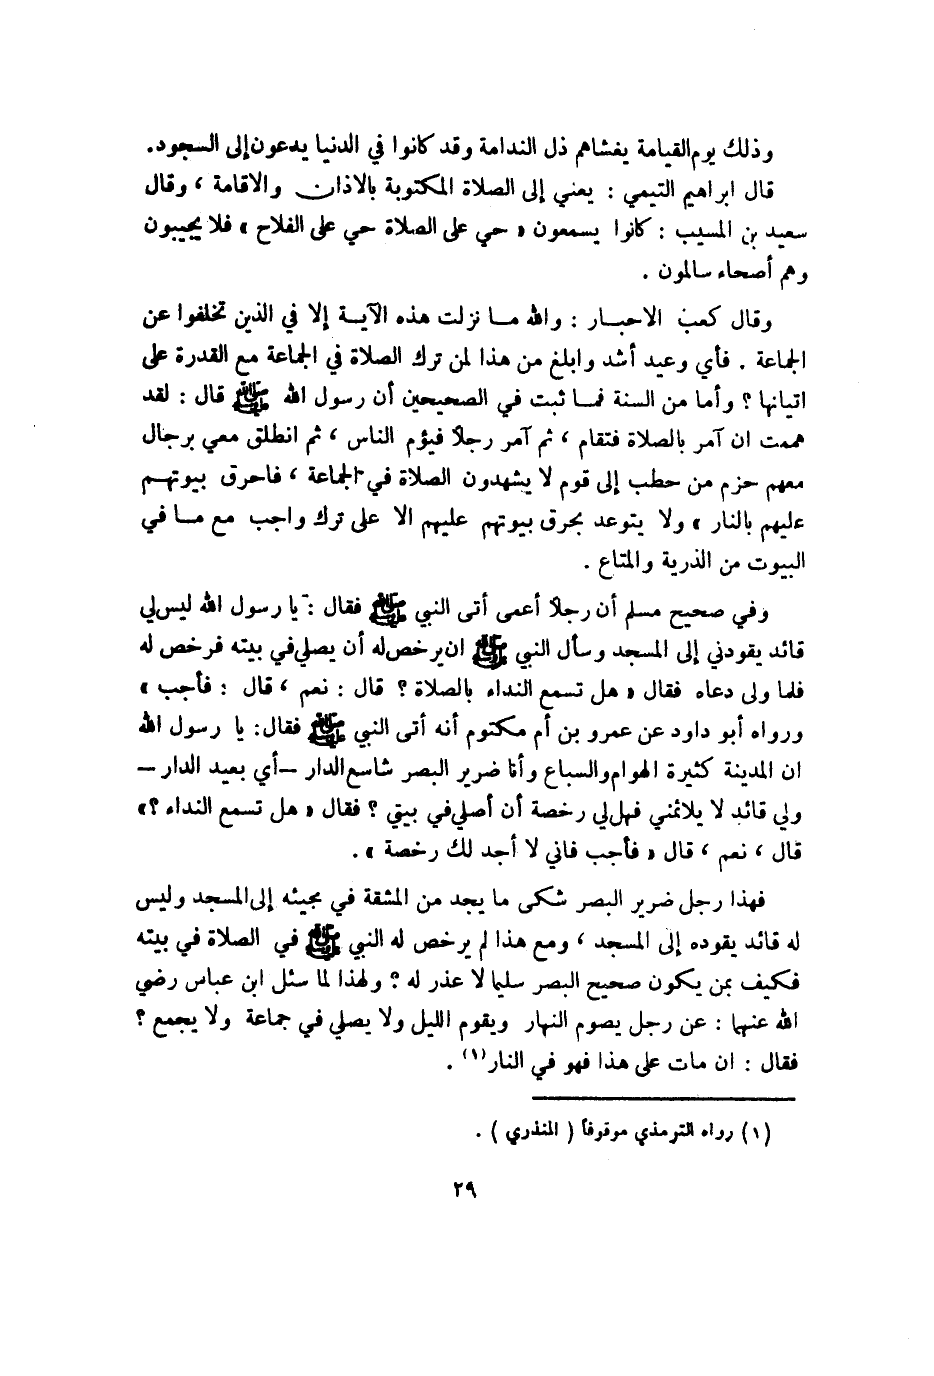 وذلك يوم القيامة يغشاهم ذل الندامة وقد كانوا في الدنيا يدعون إلى السجود.
قال ابراهيم التيمي : يعني إلى الصلاة المكتوبة بالاذان والاقامة ، وقال
سعيد بن المسيب : كانوا يسمعون « حي على الصلاة حي على الفلاح » فلا يجيبون
وهم أصحاء سالمون .
وقال كعب الاحبار : والله ما نزلت هذه الآية إلا في الذين تخلفوا عن
الجماعة . فأي وعيد أشد وابلغ من هذا لمن ترك الصلاة في الجماعة مع القدرة على
اتيانها ؟ وأما من السنة فما ثبت في الصحيحين أن رسول الله ﷺ قال : لقد
هممت ان آمر بالصلاة فتقام ، ثم آمر رجلاً فيؤم الناس ، ثم انطلق معي برجال
معهم حزم من حطب إلى قوم لا يشهدون الصلاة في الجماعة ، فاحرق بيوتهم
عليهم بالنار » ولا يتوعد بحرق بيوتهم عليهم الا على ترك واجب مع ما في
البيوت من الذرية والمتاع .
وفي صحيح مسلم أن رجلاً أعمى أتى النبي ﷺ فقال : يا رسول الله ليس لي
قائد يقودني إلى المسجد وسأل النبي ﷺ ان يرخص له أن يصلي في بيته فرخص له
فلما ولى دعاه فقال « هل تسمع النداء بالصلاة ؟ قال : نعم ، قال : فأجب »
ورواه أبو داود عن عمرو بن أم مكتوم أنه أتى النبي ﷺ فقال: يا رسول الله
ان المدينة كثيرة الهوام والسباع وأنا ضرير البصر شاسع الدار –أي بعيد الدار –
ولي قائد لا يلائمني فهل لي رخصة أن أصلي في بيتي ؟ فقال « هل تسمع النداء ؟»
قال ، نعم ، قال « فأجب فاني لا أجد لك رخصة » .
فهذا رجل ضرير البصر شكى ما يجد من المشقة في مجيئه إلى المسجد وليس
له قائد يقوده إلى المسجد ، ومع هذا لم يرخص له النبي ﷺ في الصلاة في بيته
فكيف بمن يكون صحيح البصر سليما لا عذر له ؟ ولهذا لما سئل ابن عباس رضي
الله عنهما : عن رجل يصوم النهار ويقوم الليل ولا يصلي في جماعة ولا يجمع ؟
فقال : ان مات على هذا فهو في النار(١) .
(١) رواه الترمذي موقوفاً ( المنذري ) .
٢٩